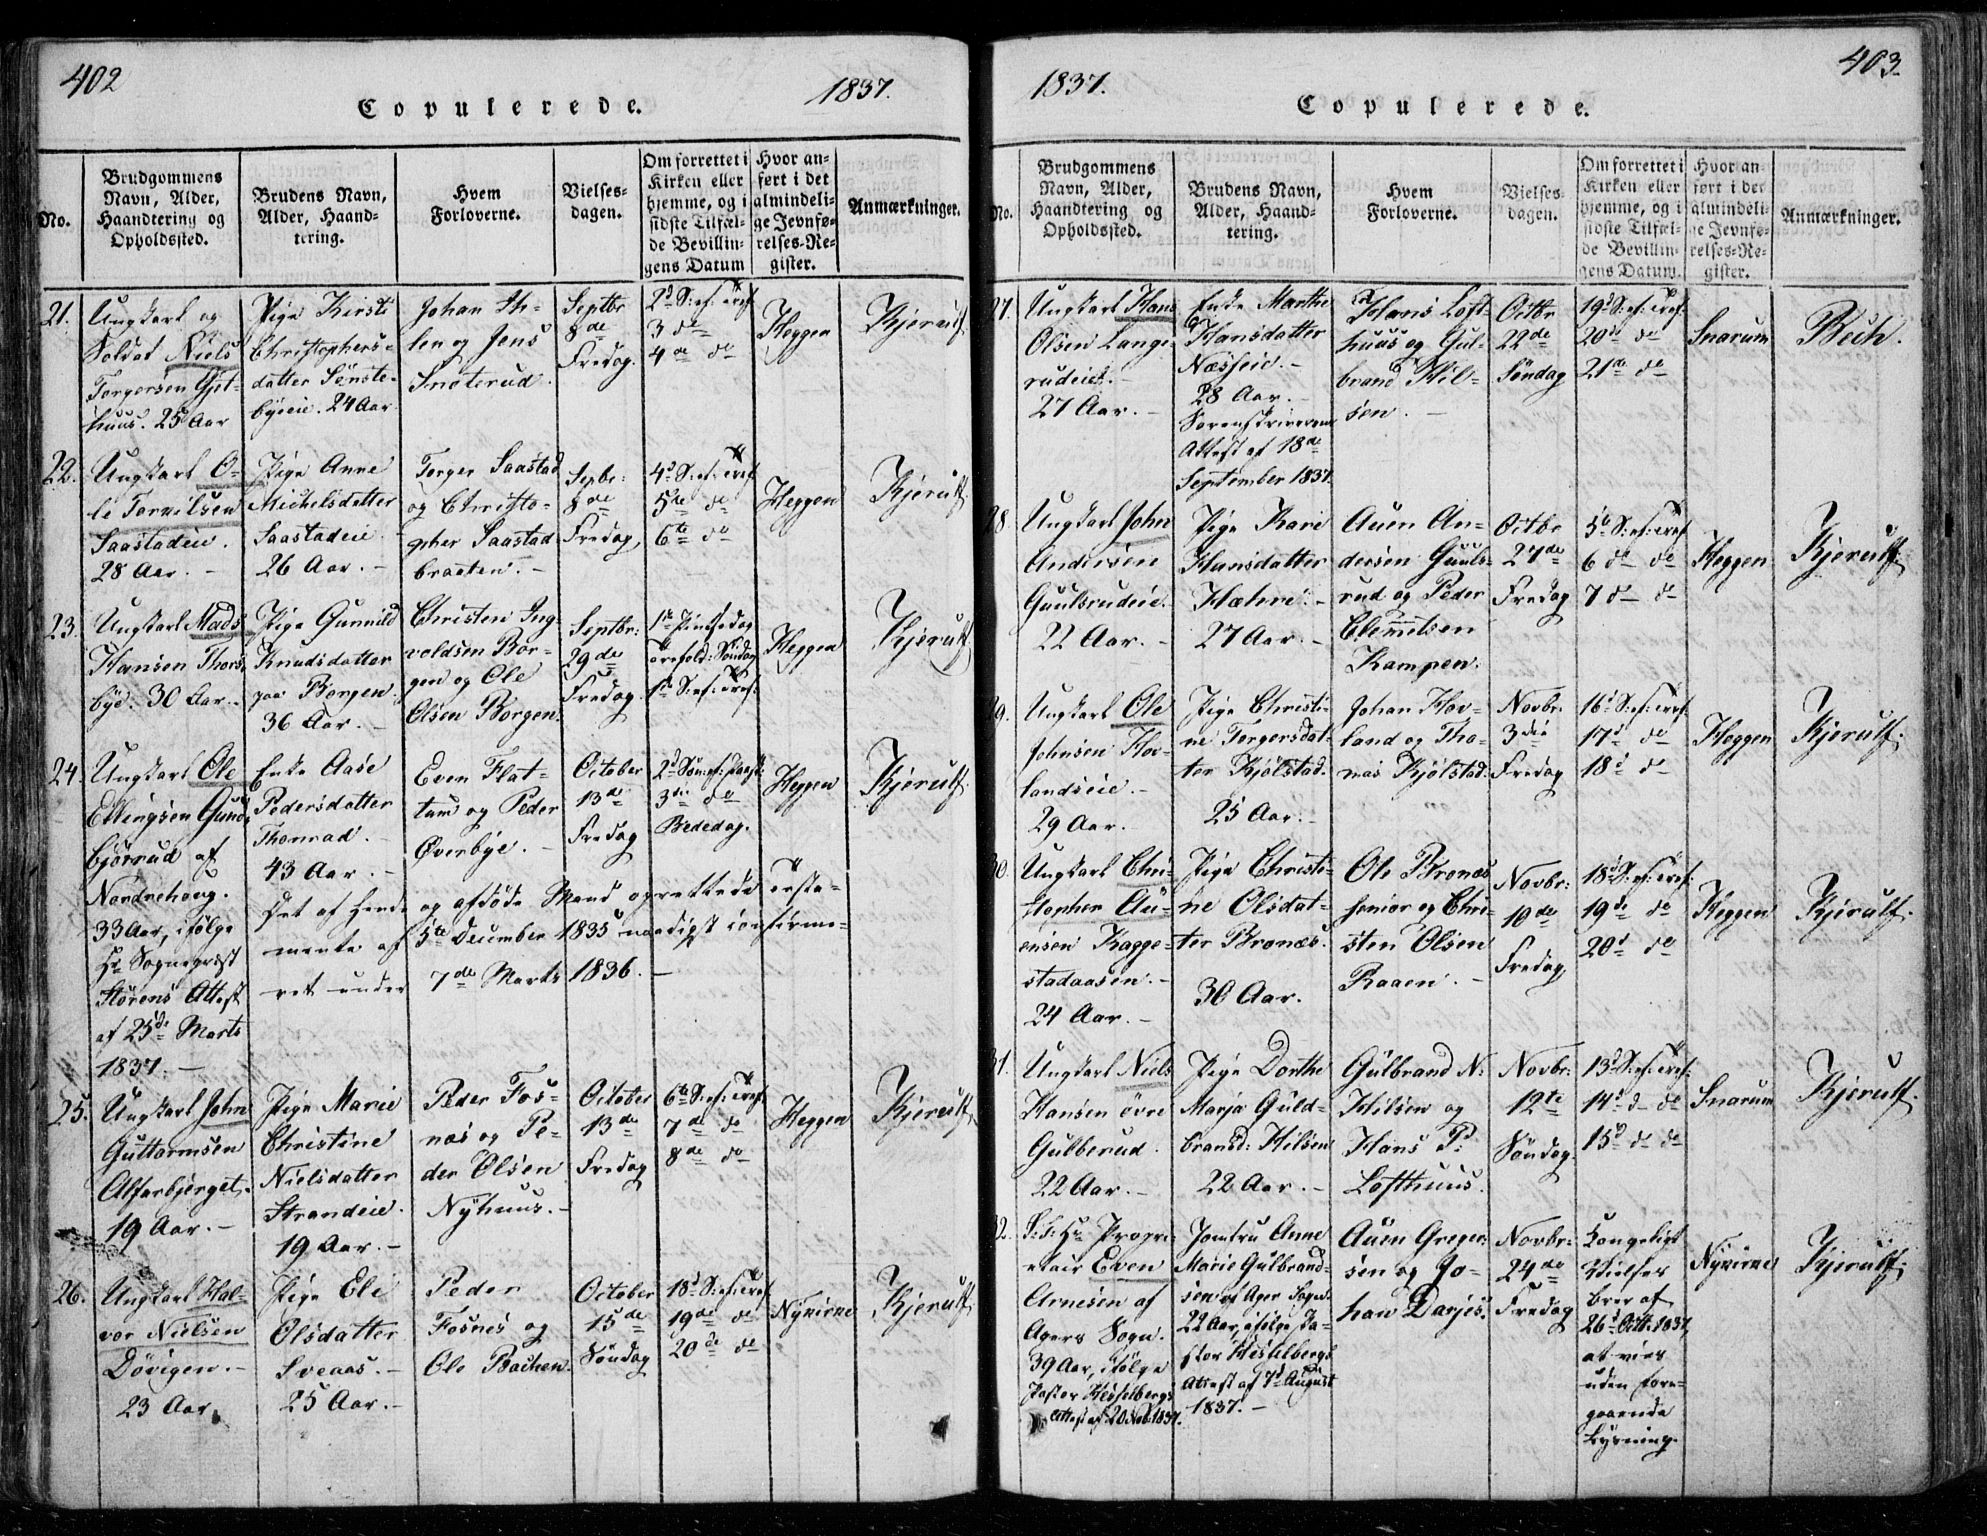 402
1837.
Copulerede.
No.
Brudgommens
Navn, Alder,
Haandtering og
Opholdssted.
Brudens Navn,
Alder, Haand-
tering.
Hvem
Forloverne.
Vielses-
dagen.
Om forrettet i
Kirken eller
hjemme, og i
sidste Tilfæl-
de Bevillin-
gens Datum
Hvor an-
ført i det
almindeli-
ge Jevnfø-
relses-Re-
gister.
Anmærkninger.
21.
Ungkarl og
Soldat Niels
Torgersen
huus. 25 Aar
Pige Kirsti
Christophers-
datter Sønste-
byeie. 24 Aar
Johan
len og Jens
Snoterud.
Septbr
8de
Fredag.
2d S: ef: Tref
3 de
4de do
Heggen
Kjerulf.
22.
Ungkarl O-
le Torkilsen
Saastadeie.
28 Aar. -
Pige Anne
Michelsdatter
Saastadeie
26 Aar. -
Torger Saastad
og Christo-
pher Saastad
braaten. -
Sepbr:
8de
Fredag,
4d S: ef: Tref
5de do
6te do
Heggen
Kjerulf.
23.
Ungkarl Mads
Hansen Thors
bye. 30 Aar. -
Pige Gunnild
Knudsdatter
paa Borgen.
36 Aar. -
Christen Ing
voldsen Bor-
gen og Ole
Olsen Borgen.
Septbr:
29de
Fredag.
1ste Pintsedag
Trefold: Søndag
1ste S: ef: Tref:
Heggen
Kjerulf
24.
Ungkarl Ole
Ellingsen Gund
bjørrud af
Norderhoug.
33 Aar, ifølge
Hr Sogneprest
Størens Attest
af 25de Marts
1837. -
Enke Aase
Pedersdatter
Thonrad. -
43 Aar. -
Even Flat-
tum og Peder
Øverbye. -
October
13de
Fredag
2d Søn: ef: Paaske
3die do
Bededag.
Heggen
Kjerulf.
Det af hende og afdøde Mand oprettede Testa-
mente af 5te December 1835 naadigst confirme-
ret under 7de Marts 1836. -
25.
Ungkarl John
Guttormsen
Alfarbjerget.
19 Aar. -
Pige Marie
Christine
Nielsdatter
Strandeie.
19 Aar. -
Peder Fos-
næs og Pe-
der Olsen
Nyhuus. -
October
13de
Fredag
6te S: ef: Tref
7de do
8de do
Heggen
Kjerulf.
26.
Ungkarl Hal-
vor Nielsen
Døvigen. -
23 Aar.
Pige Eli
Olsdatter
Sveaas. -
25 Aar. -
Peder
Fosnes og
Ole Bachen.
October
15de
Søndag
18d S: ef: Tref
19de do
20de do
Nykirke
Kjerulf
403.
1837.
Copulerede.
No.
Brudgommens
Navn, Alder,
Haandtering og
Opholdssted.
Brudens Navn,
Alder, Haand-
tering.
Hvem
Forloverne.
Vielses-
dagen.
Om forrettet i
Kirken eller
hjemme, og i
sidste Tilfæl-
de Bevillin-
gens Datum.
Hvor an-
ført i det
almindeli-
ge Jevnfø-
relses-Re-
gister.
Anmærkninger.
27.
Ungkarl Hans
Olsen Lange
rudeiet. -
27 Aar. -
Enke Marthe
Hansdatter
Næsseie. -
28 Aar. -
Sorenskriverens
Attest af 18de
September 1837.
Hans Loft-
huus og Gul-
brand Hil-
sen. -
Octbr
22de
Søndag
19d S: ef: Tref:
20de do
21de do
Snarum
Bech.
28
Ungkarl John
Andersen
Guulsrudeie.
22 Aar. -
Pige Kari
Hansdatter
Hæhre. -
27 Aar. -
Auen An-
dersen Guuls-
rud og Peder
Clemmetsen
Kampen.
Octbr
27de
Fredag
5te S: ef: Tref
6 de do
7 de do
Heggen
Kjerulf.
29.
Ungkarl Ole
Johnsen Hov-
landseie. -
29 Aar.
Pige Christi-
ne Torgersdat-
ter Kjølstad.
25 Aar. -
Johan Hov-
land og Tho-
mas Kjølstad.
Novbr.
3die
Fredag
16d S: ef: Tref:
17d do
18d do
Heggen
Kjerulf.
30.
Ungkarl Chri-
stopher Au-
ensen Kagge-
stadaasen. -
24 Aar. -
Pige Christi-
ne Olsdat-
ter Bronæs.
30 Aar.
Ole Bronæs
senior og Chri-
sten Olsen
Raaen. -
Novbr:
10de
Fredag,
18d S: ef: Tref:
19de do
20d do
Heggen
Kjerulf.
31.
Ungkarl Niels
Hansen øvre
Gulberud.
22 Aar. -
Pige Dorthe
Marja Guld-
brandsd: Hilsen
22 Aar. -
Gulbrand N:
Hilsen og
Hans P.
Lofthuus.
Novbr:
12te
Søndag.
13d S: ef: Tref:
14d d- do
15d de do
Snarum
Kjerulf.
32.
S: T: Hr Propri-
etair Even
Arnesen af
Agers Sogn.
39 Aar, ifølge
Pastor Hesselbergs
Attest af 20 Nov: 1837.
Jomfru Anne
Marie Gulbrand-
sen af Ager Sogn.
22 Aar, ifølge Pa-
stor Hesselbergs
Attest af 7d August
1837. -
Auen Greger-
sen og Jo-
han Darjes.
Novbr:
24de
Fredag
Kongeligt
Vielses
brev af
26d Octb. 1837,
at vies
uden fore-
gaaende
Lysning.
Nykirke
Kjerulf.